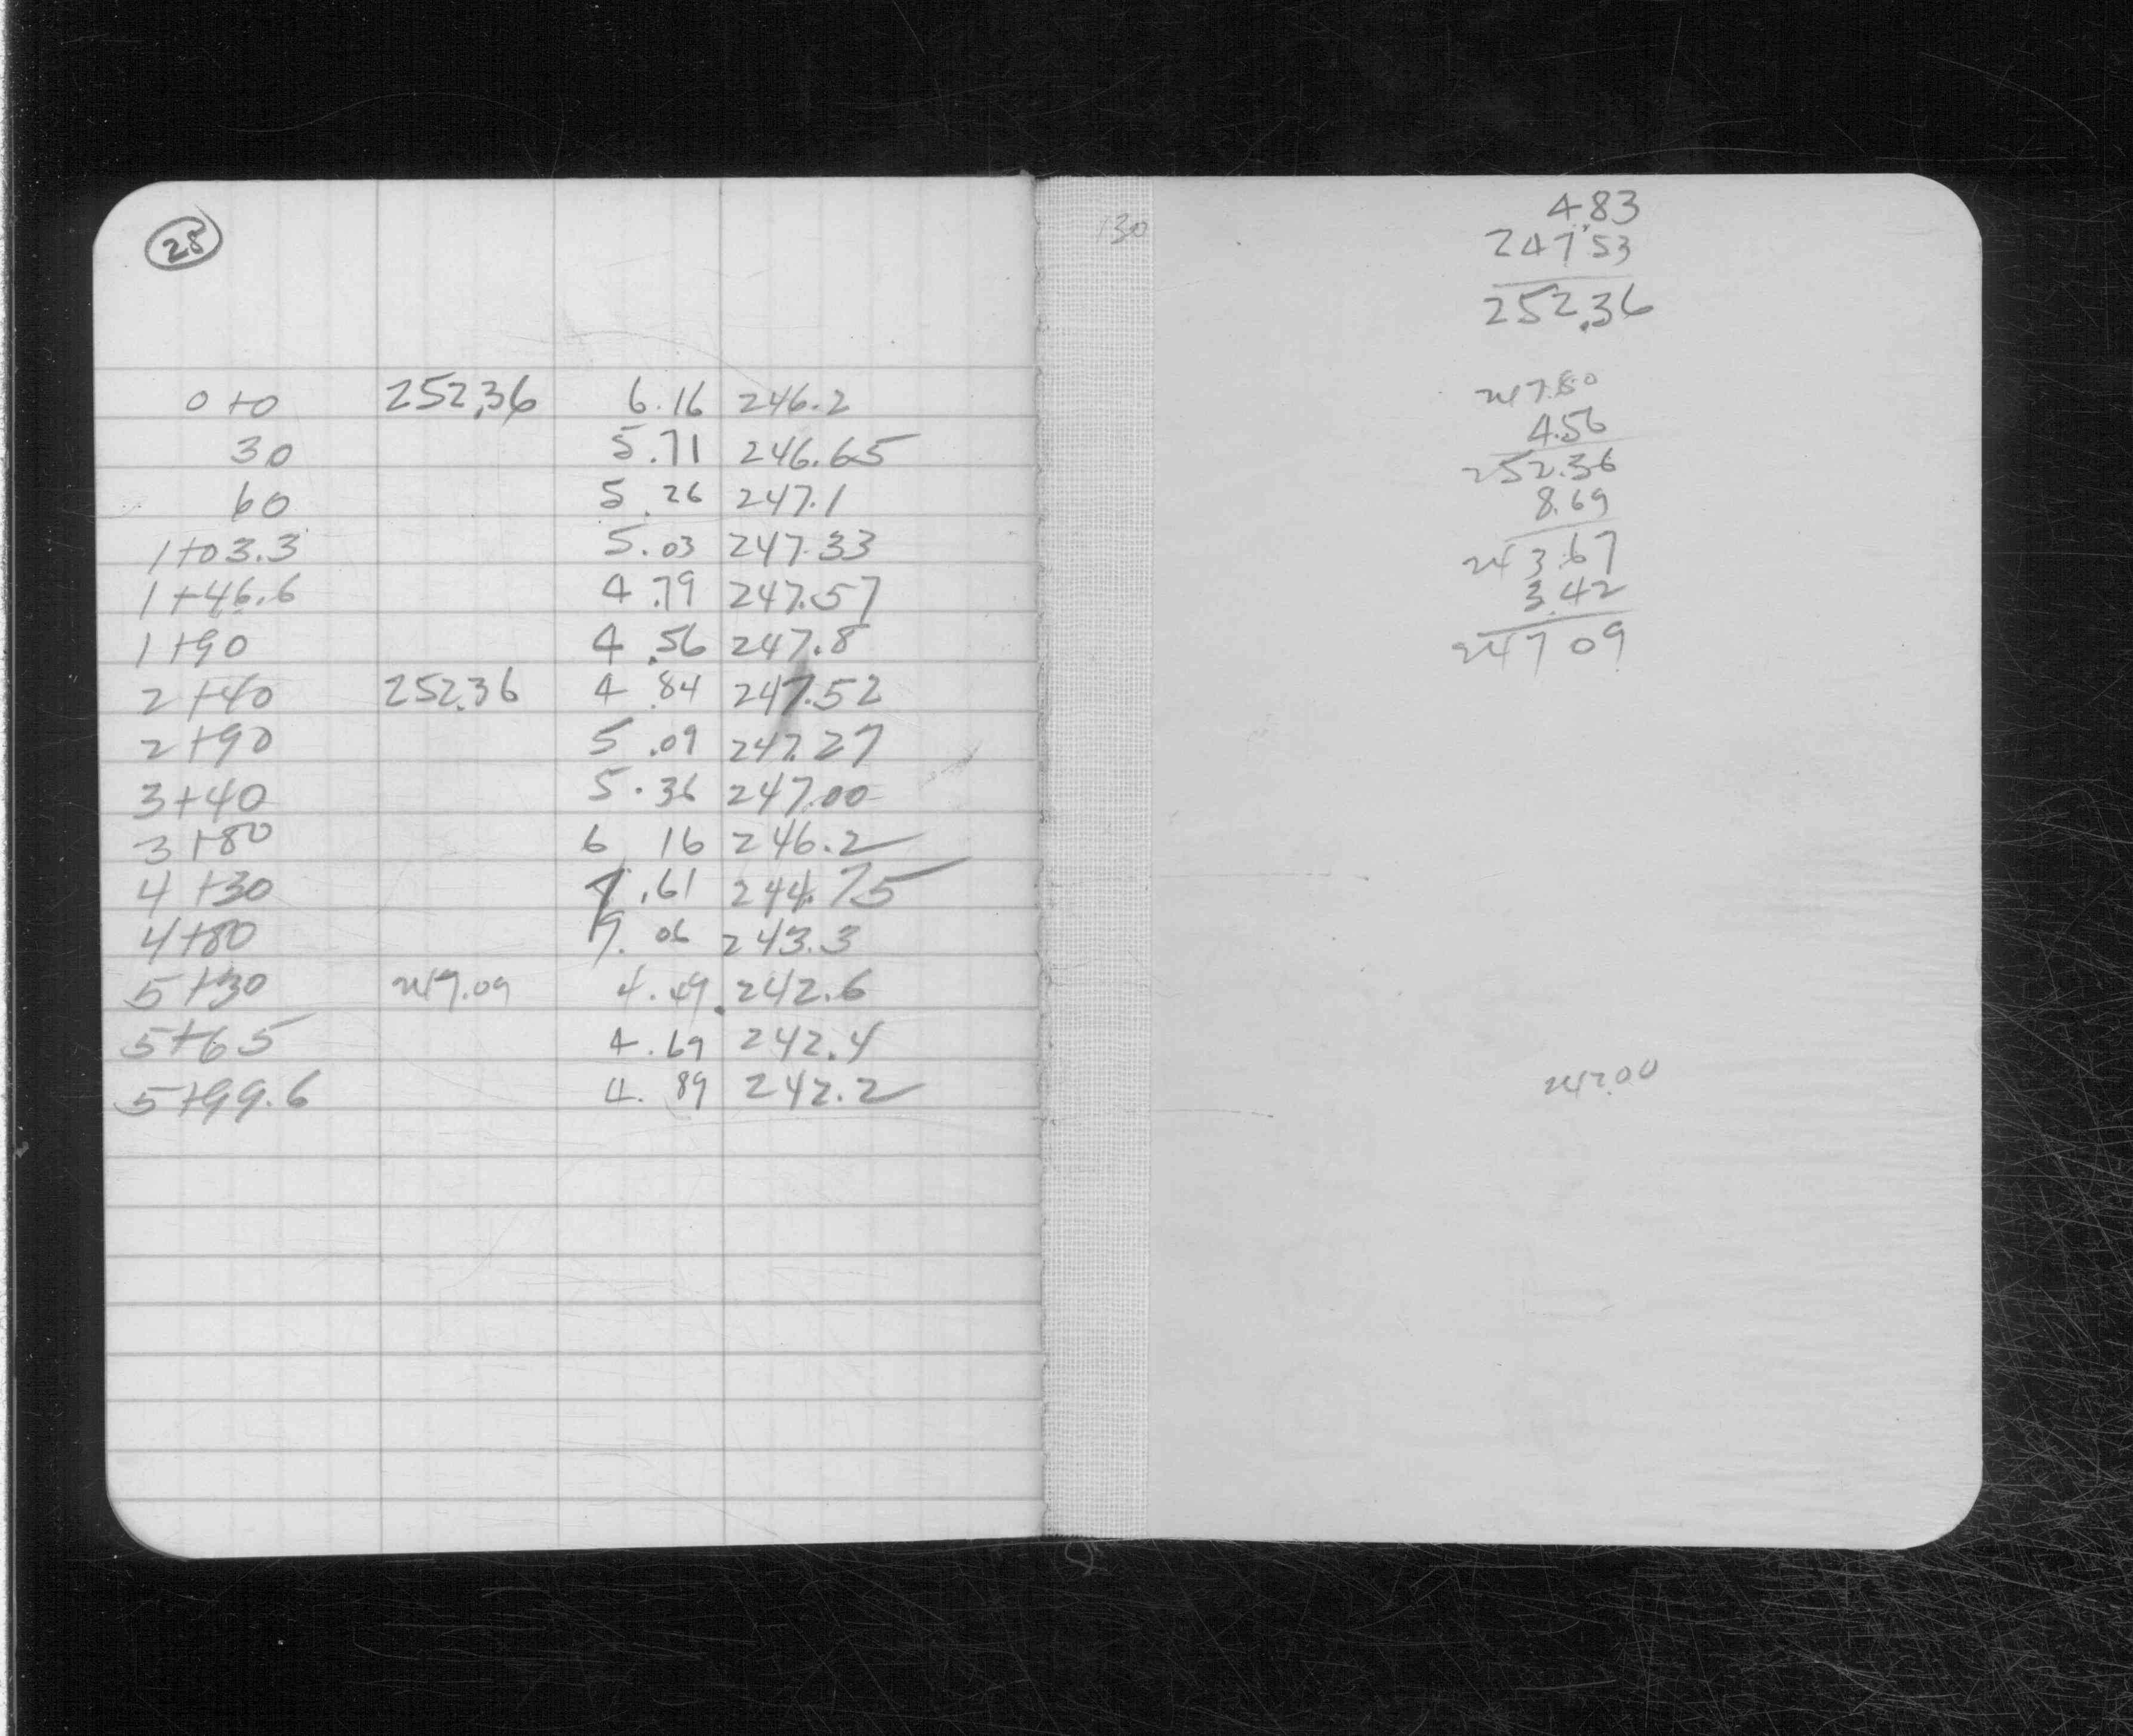 28
0+0 252.36 6.16 246.2
30 5.71 246.65
60 5.26 247.1
1+03.3 5.03 247.33
1+46.6 4.79 247.57
1+90 4.56 247.8
2+40 252.36 4.84 247.52
2+90 5.09 247.27
3+40 5.36 247.00
3+80 6 16 246.2
4+30 7.61 244.75
4+80 9.06 243.3
5+30 247.09 4.49 242.6
5+65 4.69 242.4
5+99.6 4.89 242.2
130
4.83
247.53
252.36
247.80
4.56
252.36
8.69
243.67
3.42
247 09
247.00